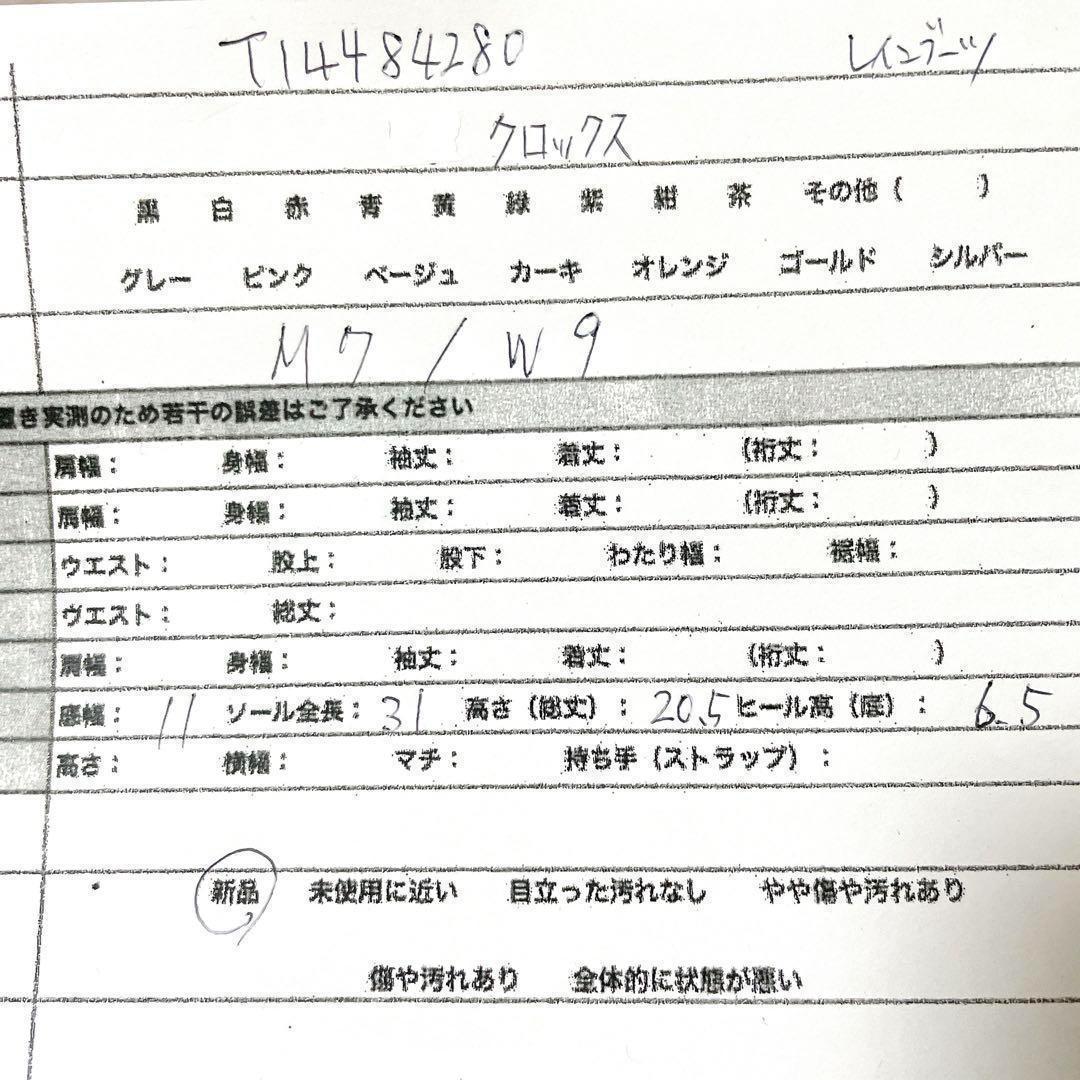 T14484280 レインブーツ
クロックス
黒 白 赤 青 黄 緑 紫 紺 茶 その他( )
グレー ピンク ベージュ カーキ オレンジ ゴールド シルバー
M7 / W9
置き実測のため若干の誤差はご了承ください
肩幅: 身幅: 袖丈: 着丈: (裄丈: )
肩幅: 身幅: 袖丈: 着丈: (裄丈: )
ウエスト: 股上: 股下: わたり幅: 裾幅:
ウエスト: 総丈:
肩幅: 身幅: 袖丈: 着丈: (裄丈: )
底幅: 11 ソール全長: 31 高さ(総丈): 20.5 ヒール高(底): 6.5
高さ: 横幅: マチ: 持ち手(ストラップ):
新品 未使用に近い 目立った汚れなし やや傷や汚れあり
傷や汚れあり 全体的に状態が悪い